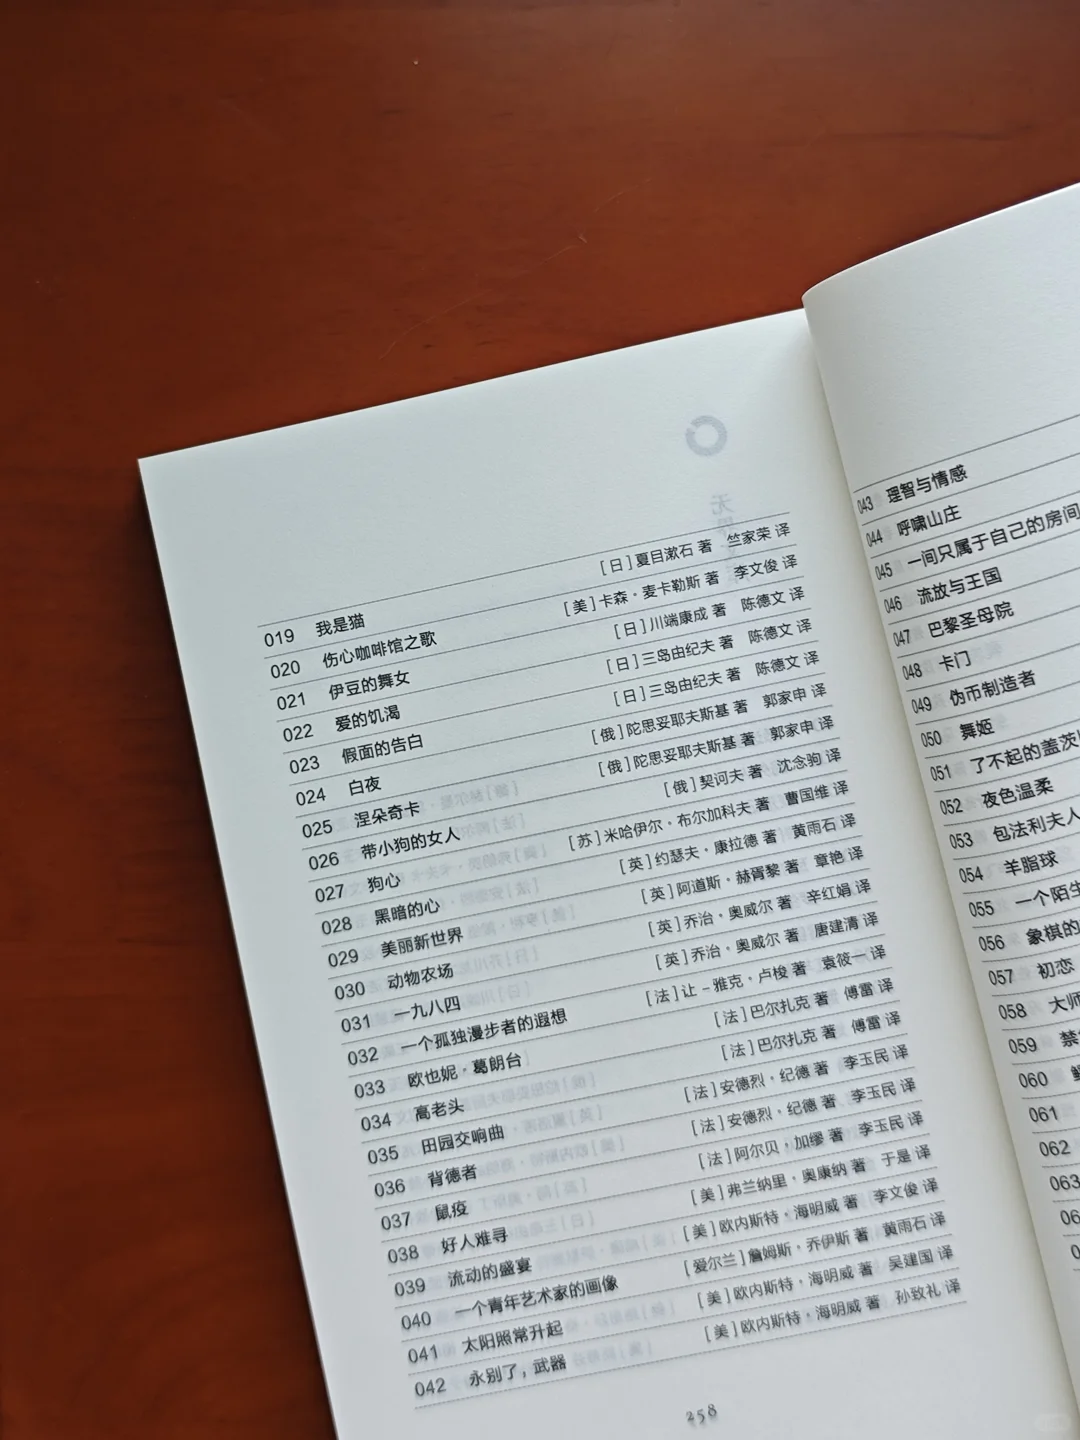 019 我是猫 [日]夏目漱石 著 竺家荣 译
020 伤心咖啡馆之歌 [美]卡森·麦卡勒斯 著 李文俊 译
021 伊豆的舞女 [日]川端康成 著 陈德文 译
022 爱的饥渴 [日]三岛由纪夫 著 陈德文 译
023 假面的告白 [日]三岛由纪夫 著 陈德文 译
024 白夜 [俄]陀思妥耶夫斯基 著 郭家申 译
025 涅朵奇卡 [俄]陀思妥耶夫斯基 著 郭家申 译
026 带小狗的女人 [俄]契诃夫 著 沈念驹 译
027 狗心 [苏]米哈伊尔·布尔加科夫 著 曹国维 译
028 黑暗的心 [英]约瑟夫·康拉德 著 黄雨石 译
029 美丽新世界 [英]阿道斯·赫胥黎 著 章艳 译
030 动物农场 [英]乔治·奥威尔 著 辛红娟 译
031 一九八四 [英]乔治·奥威尔 著 唐建清 译
032 一个孤独漫步者的遐想 [法]让-雅克·卢梭 著 袁筱一 译
033 欧也妮·葛朗台 [法]巴尔扎克 著 傅雷 译
034 高老头 [法]巴尔扎克 著 傅雷 译
035 田园交响曲 [法]安德烈·纪德 著 李玉民 译
036 背德者 [法]安德烈·纪德 著 李玉民 译
037 鼠疫 [法]阿尔贝·加缪 著 李玉民 译
038 好人难寻 [美]弗兰纳里·奥康纳 著 于是 译
039 流动的盛宴 [美]欧内斯特·海明威 著 李文俊 译
040 一个青年艺术家的画像 [爱尔兰]詹姆斯·乔伊斯 著 黄雨石 译
041 太阳照常升起 [美]欧内斯特·海明威 著 吴建国 译
042 永别了，武器 [美]欧内斯特·海明威 著 孙致礼 译
258
043 理智与情感
044 呼啸山庄
045 一间只属于自己的房间
046 流放与王国
047 巴黎圣母院
048 卡门
049 伪币制造者
050 舞姬
051 了不起的盖茨
052 夜色温柔
053 包法利夫人
054 羊脂球
055 一个陌生
056 象棋的
057 初恋
058 大师
059 禁
060
061
062
063